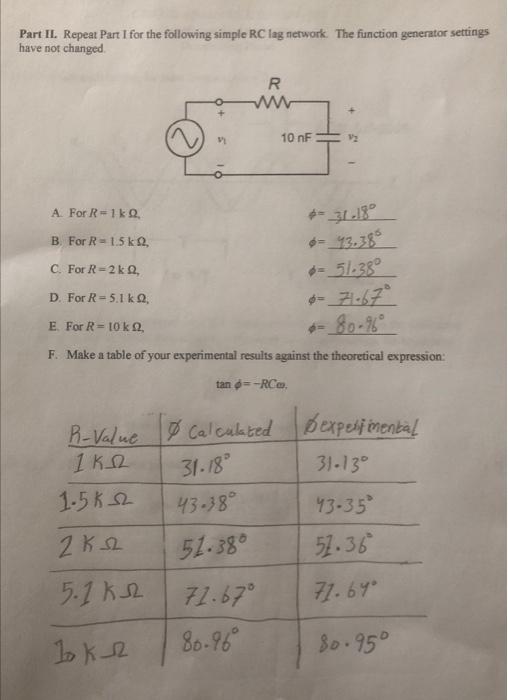 Part II. Repeat Part I for the following simple RC lag network. The function generator settings
have not changed.
R
+ v₁ −
10 nF
+ v₂ −
A. For R = 1 k Ω, ϕ= 31.18°
B. For R = 1.5 k Ω, ϕ= 43.38°
C. For R = 2 k Ω, ϕ= 51.38°
D. For R = 5.1 k Ω, ϕ= 71.67°
E. For R = 10 k Ω, ϕ= 80.96°
F. Make a table of your experimental results against the theoretical expression:
tan ϕ = −RCω.
R-Value Ø Calculated Ø experimental
1 KΩ 31.18° 31.13°
1.5 K Ω 43.38° 43.35°
2 K Ω 51.38° 51.36°
5.1 K Ω 71.67° 71.64°
10 K Ω 80.96° 80.95°